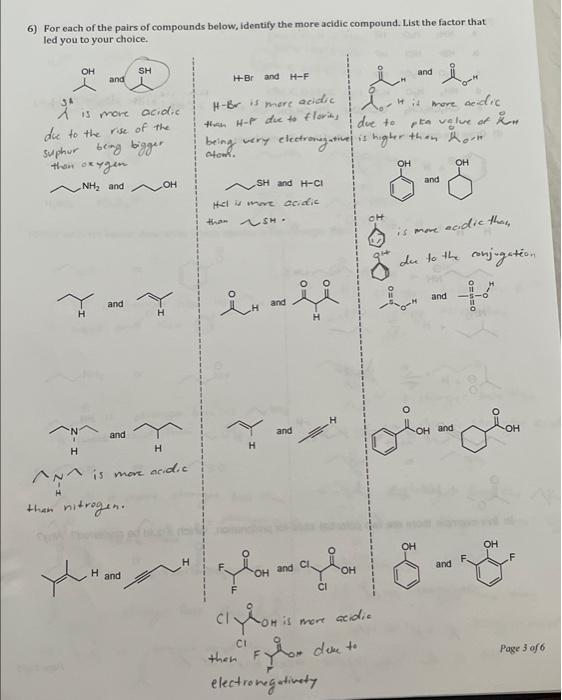 6) For each of the pairs of compounds below, identify the more acidic compound. List the factor that
led you to your choice.
OH and SH
SH
is more acidic
due to the rise of the
suphur being bigger
than oxygen
H-Br and H-F
H-Br is more acidic
than H-F due to
being very electronegative
atom.
O H and O O-H
O O-H is more acidic
due to pka value of O H
is higher than O O-H
NH₂ and OH
SH and H-Cl
Hcl is more acidic
than SH.
OH and OH
OH is more acidic than
OH due to the conjugation
H and H
O H and O O H
O S O-H and O S O O H
N H and H
N H is more acidic
than nitrogen.
H and H
O OH and O OH
H and H
F F O OH and Cl Cl O OH
Cl Cl O OH is more acidic
than F F O OH due to
electronegativety
OH and F OH F
Page 3 of 6